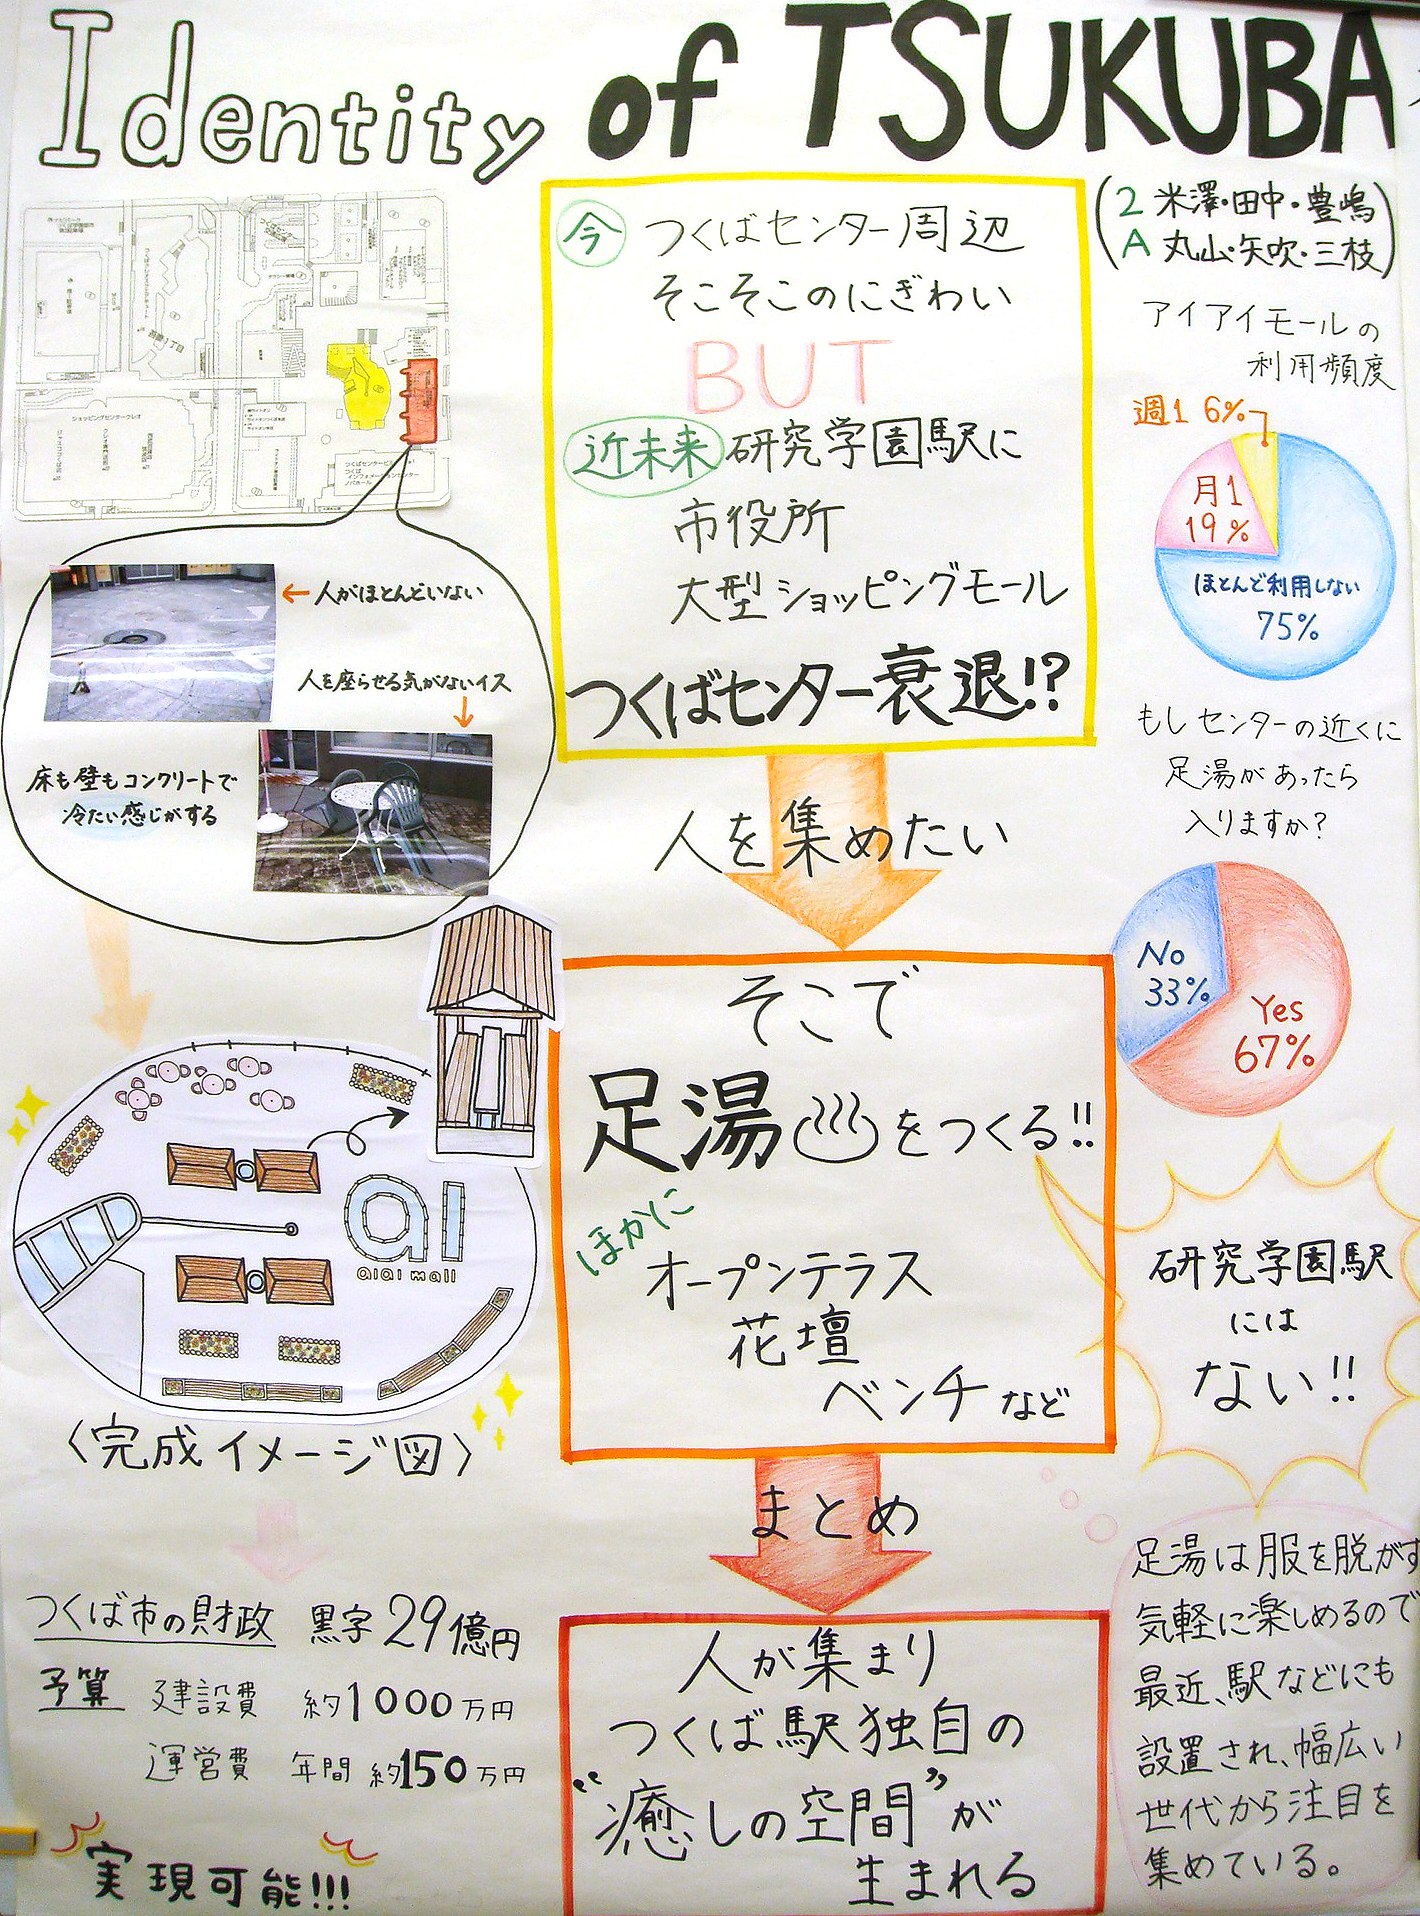 Identity of TSUKUBA
2 米澤・田中・豊嶋
A 丸山・矢吹・三枝
今 つくばセンター周辺
そこそこのにぎわい
BUT
近未来 研究学園駅に
市役所
大型ショッピングモール
つくばセンター衰退!?
人を集めたい
そこで
足湯♨をつくる!!
ほかに
オープンテラス
花壇
ベンチ など
まとめ
人が集まり
つくば駅独自の
"癒しの空間"が
生まれる
ショッピングセンタークレオ
←人がほとんどいない
人を座らせる気がないイス
↓
床も壁もコンクリートで
冷たい感じがする
aiai mall
〈完成イメージ図〉
つくば市の財政 黒字 29億円
予算 建設費 約1000万円
運営費 年間 約150万円
実現可能!!!
アイアイモールの
利用頻度
週1 6%
月1
19%
ほとんど利用しない
75%
もしセンターの近くに
足湯があったら
入りますか?
No
33%
Yes
67%
研究学園駅
には
ない!!
足湯は服を脱がず
気軽に楽しめるので
最近、駅などにも
設置され、幅広い
世代から注目を
集めている。